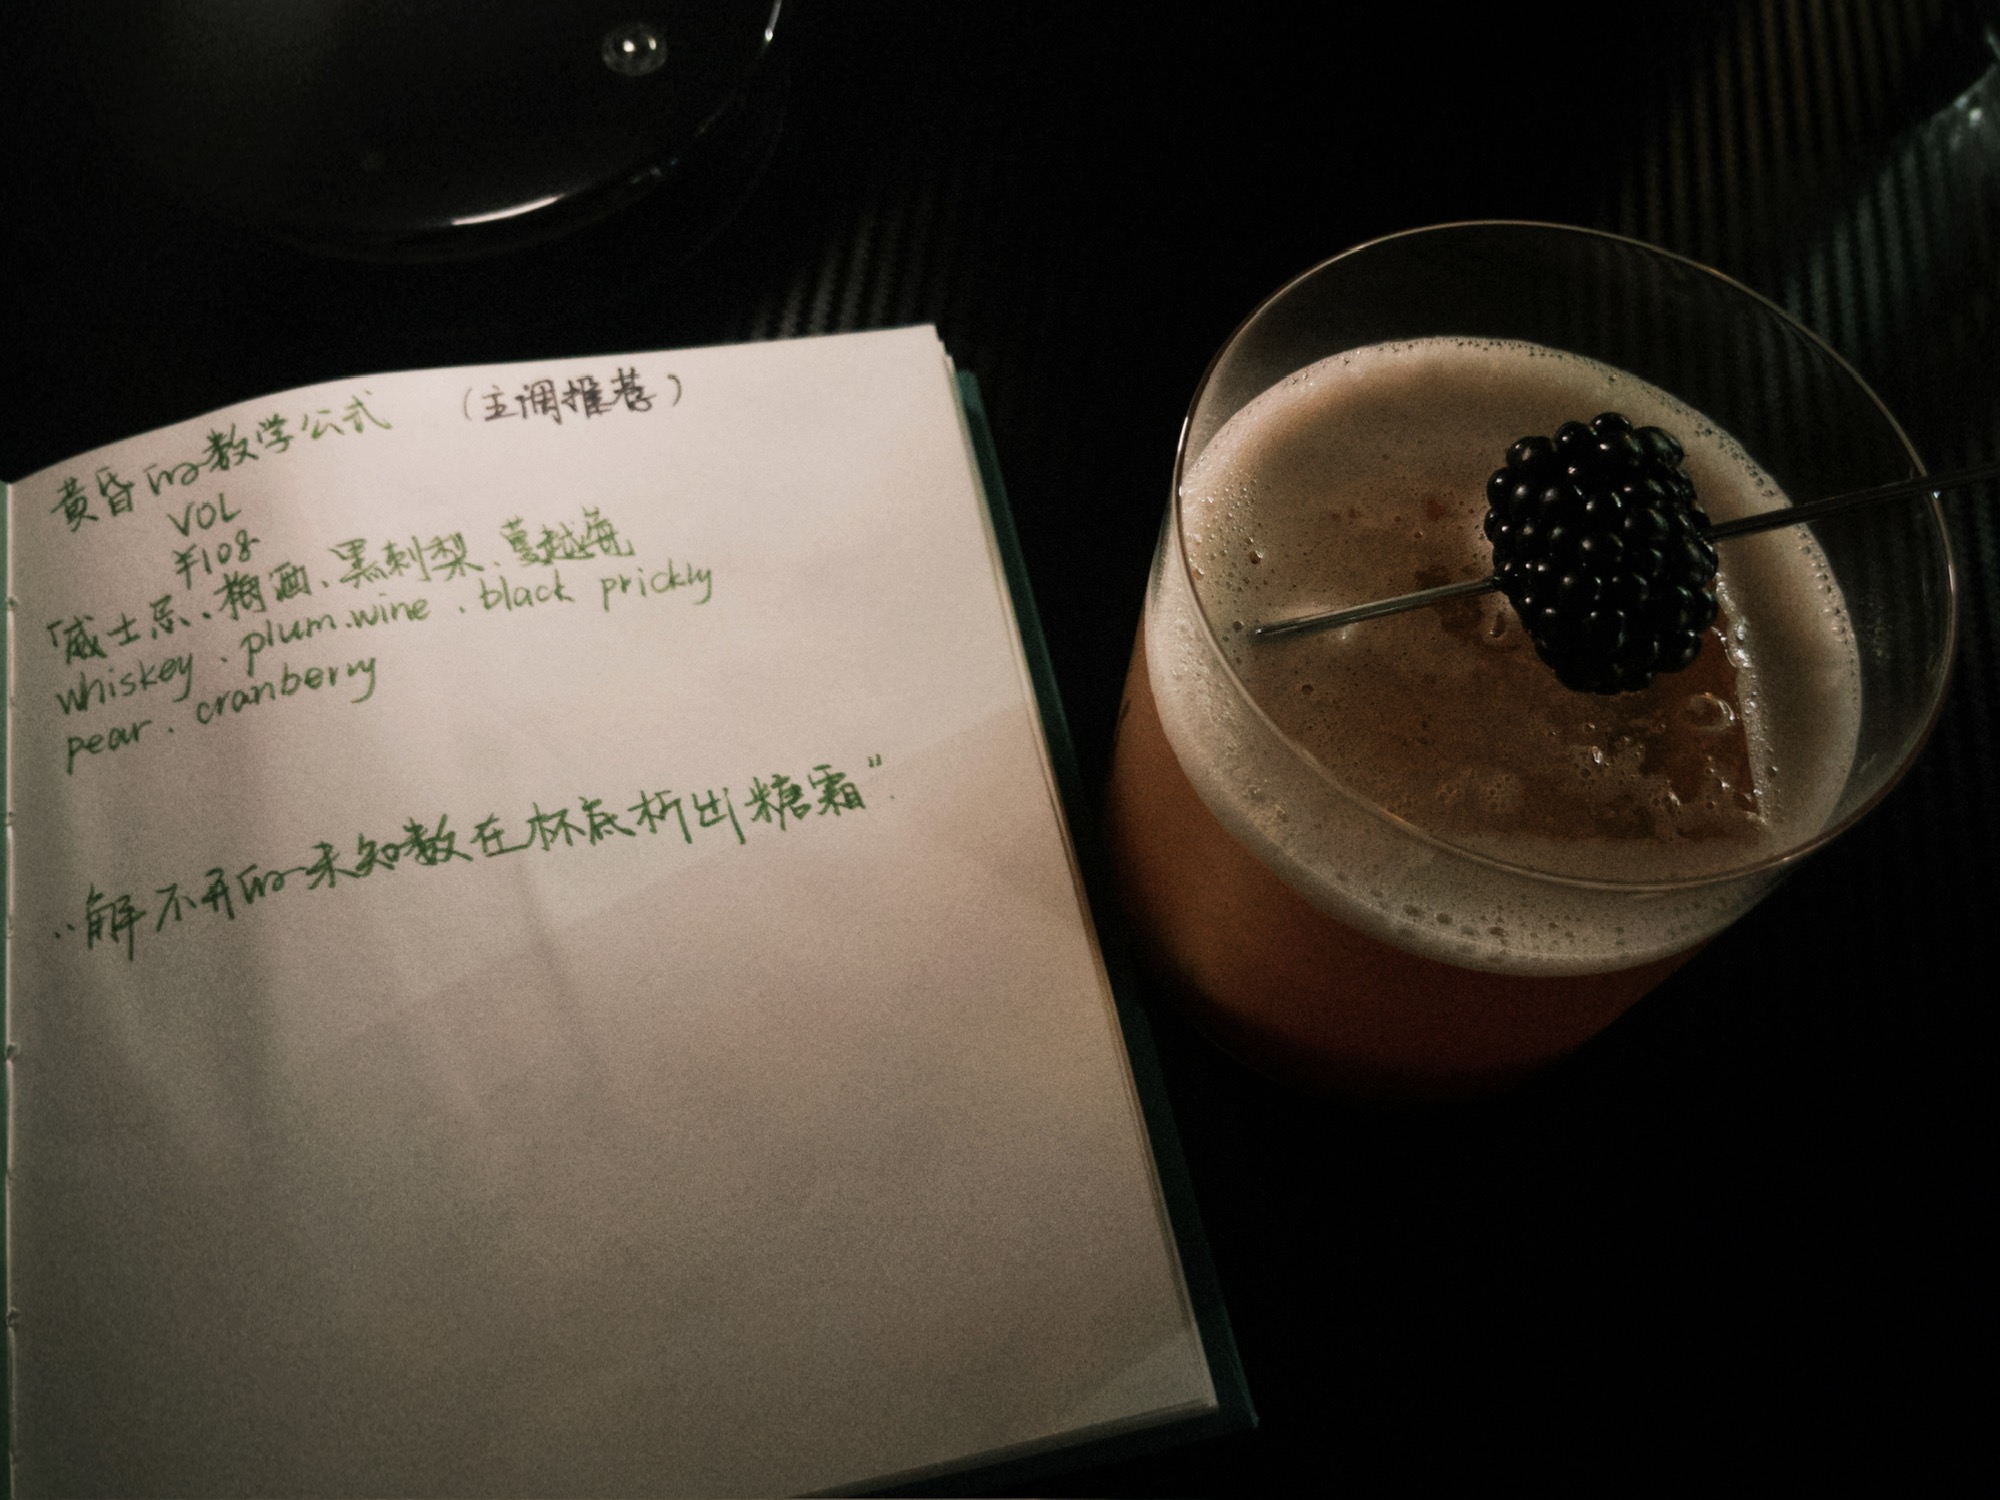 黄昏的数学公式 （主调推荐）
VOL
¥108
「威士忌、梅酒、黑刺梨、蔓越莓
whiskey . plum.wine . black prickly
pear . cranberry
“解不开的未知数在杯底析出糖霜”